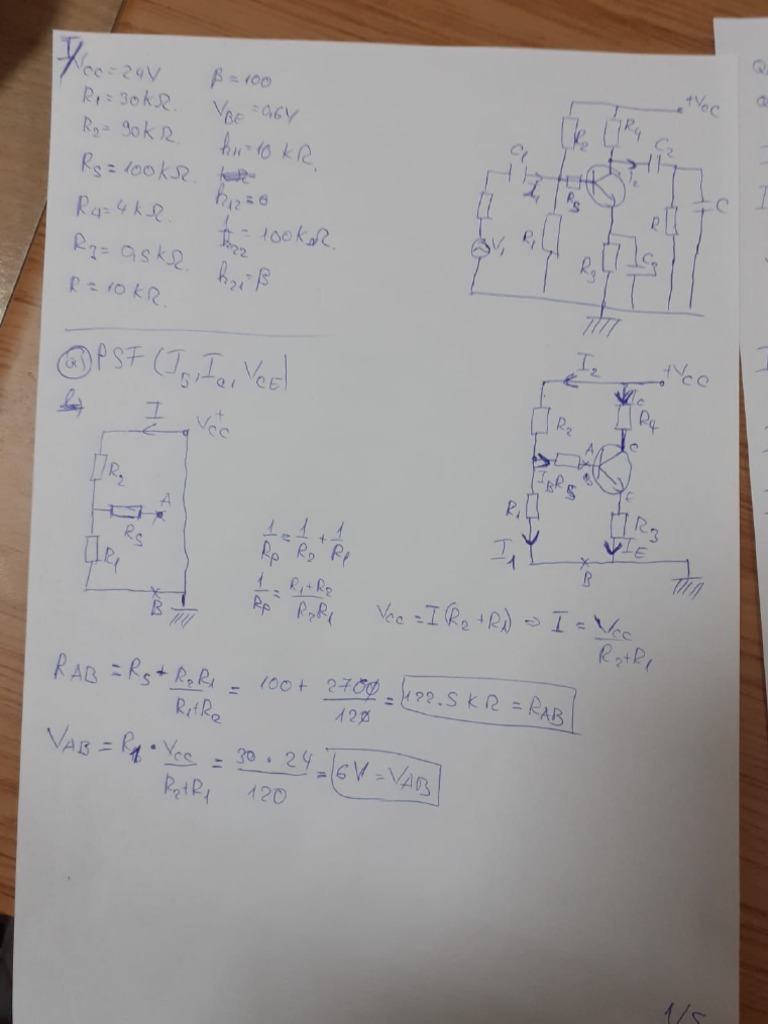 I/
VCC = 24V
R1 = 30kΩ.
R2 = 90kΩ.
R5 = 100kΩ.
R4 = 4kΩ.
R3 = 0,5kΩ.
R = 10kΩ.
β = 100
VBE = 0,6V
h11 = 10 kΩ.
h12 = 0
1/h22 = 100kΩ.
h21 = β
+VCC
R2
R4
C1
C2
I1
R5
I2
R1
R
C
V1
R3
C3
a) PSF (IB, IC, VCE)
I
VCC+
R2
A
R5
R1
B
I2
+VCC
IC
R2
R4
A
C
B
IB
R5
E
R1
R3
I1
IE
B
1/RP = 1/R2 + 1/R1
1/RP = R1+R2/R2R1
VCC = I(R2+R1) ⇒ I = VCC/R2+R1
RAB = R5 + R2R1/R1+R2 = 100 + 2700/120 = 122.5 KΩ = RAB
VAB = R1 · VCC/R2+R1 = 30 · 24/120 = 6V = VAB
1/5